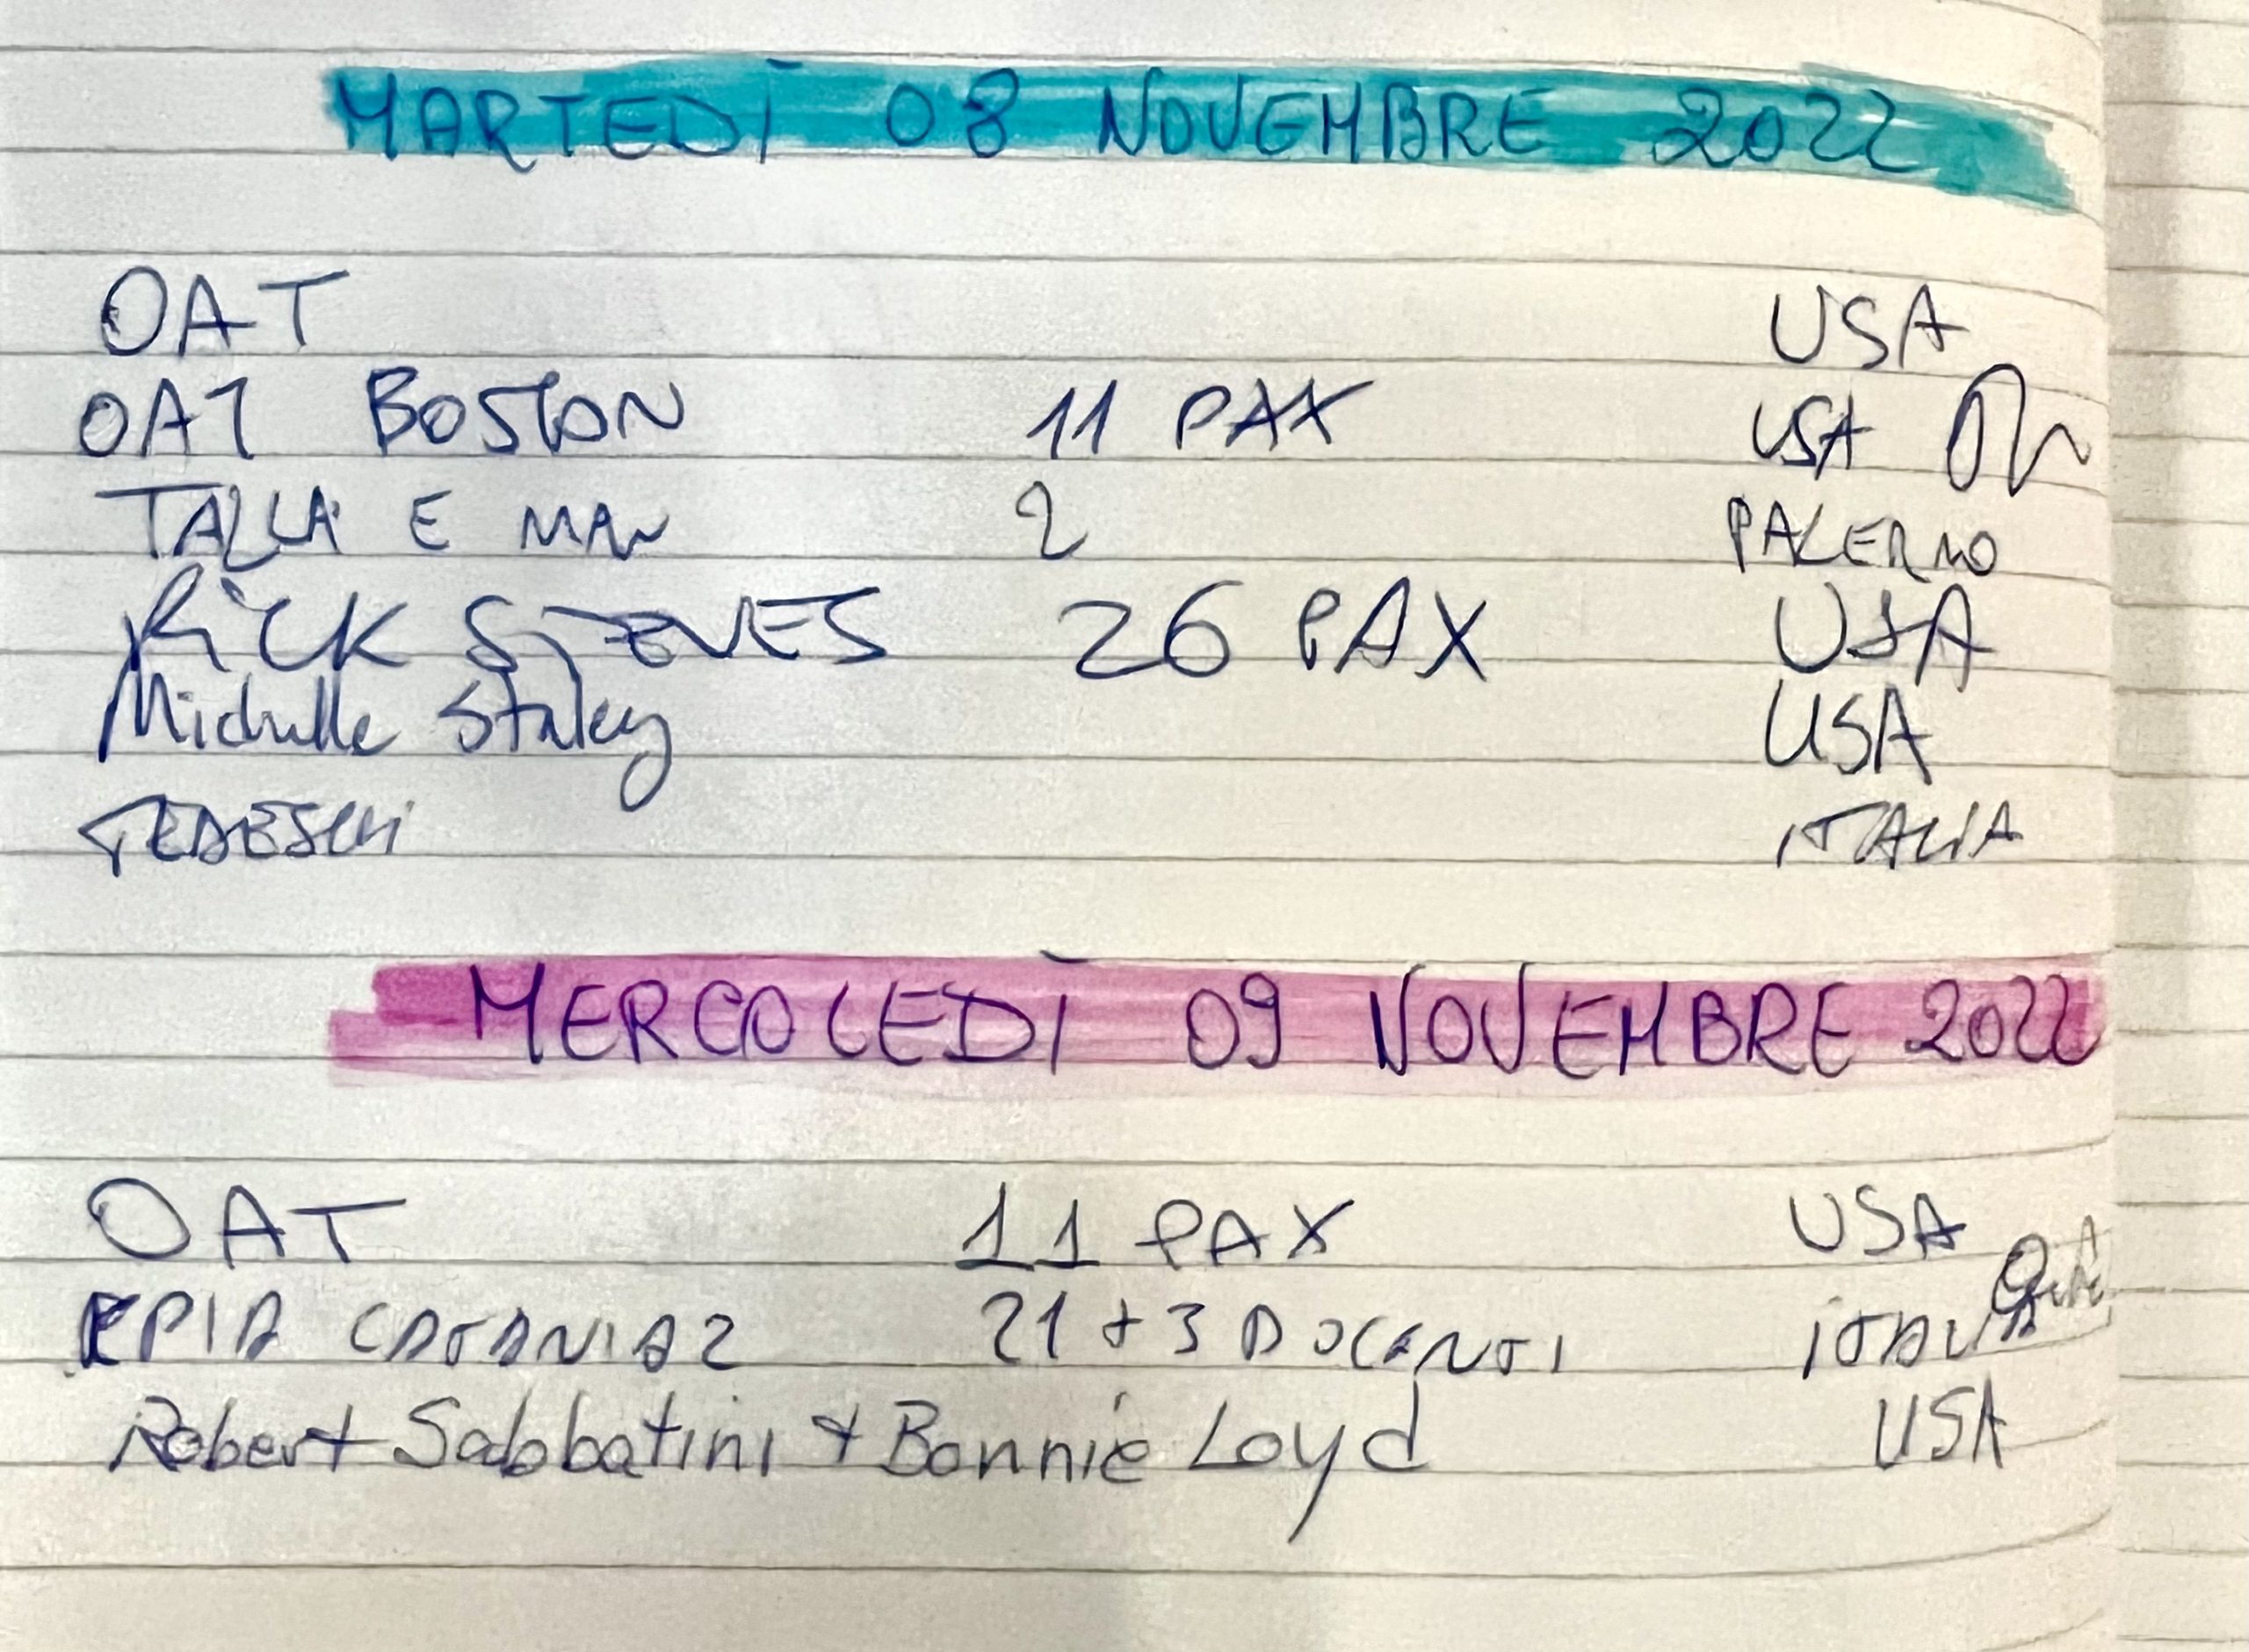 MARTEDÌ 08 NOVEMBRE 2022
OAT USA
OAT BOSTON 11 PAX USA
E 2 PALERMO
RICK STEVES 26 PAX USA
Michelle Staley USA
TEDESCHI ITALIA
MERCOLEDÌ 09 NOVEMBRE 2022
OAT 11 PAX USA
CPIA CATANIA 2 21 + 3 DOCENTI ITALIA
Robert Sabbatini + Bonnie Loyd USA